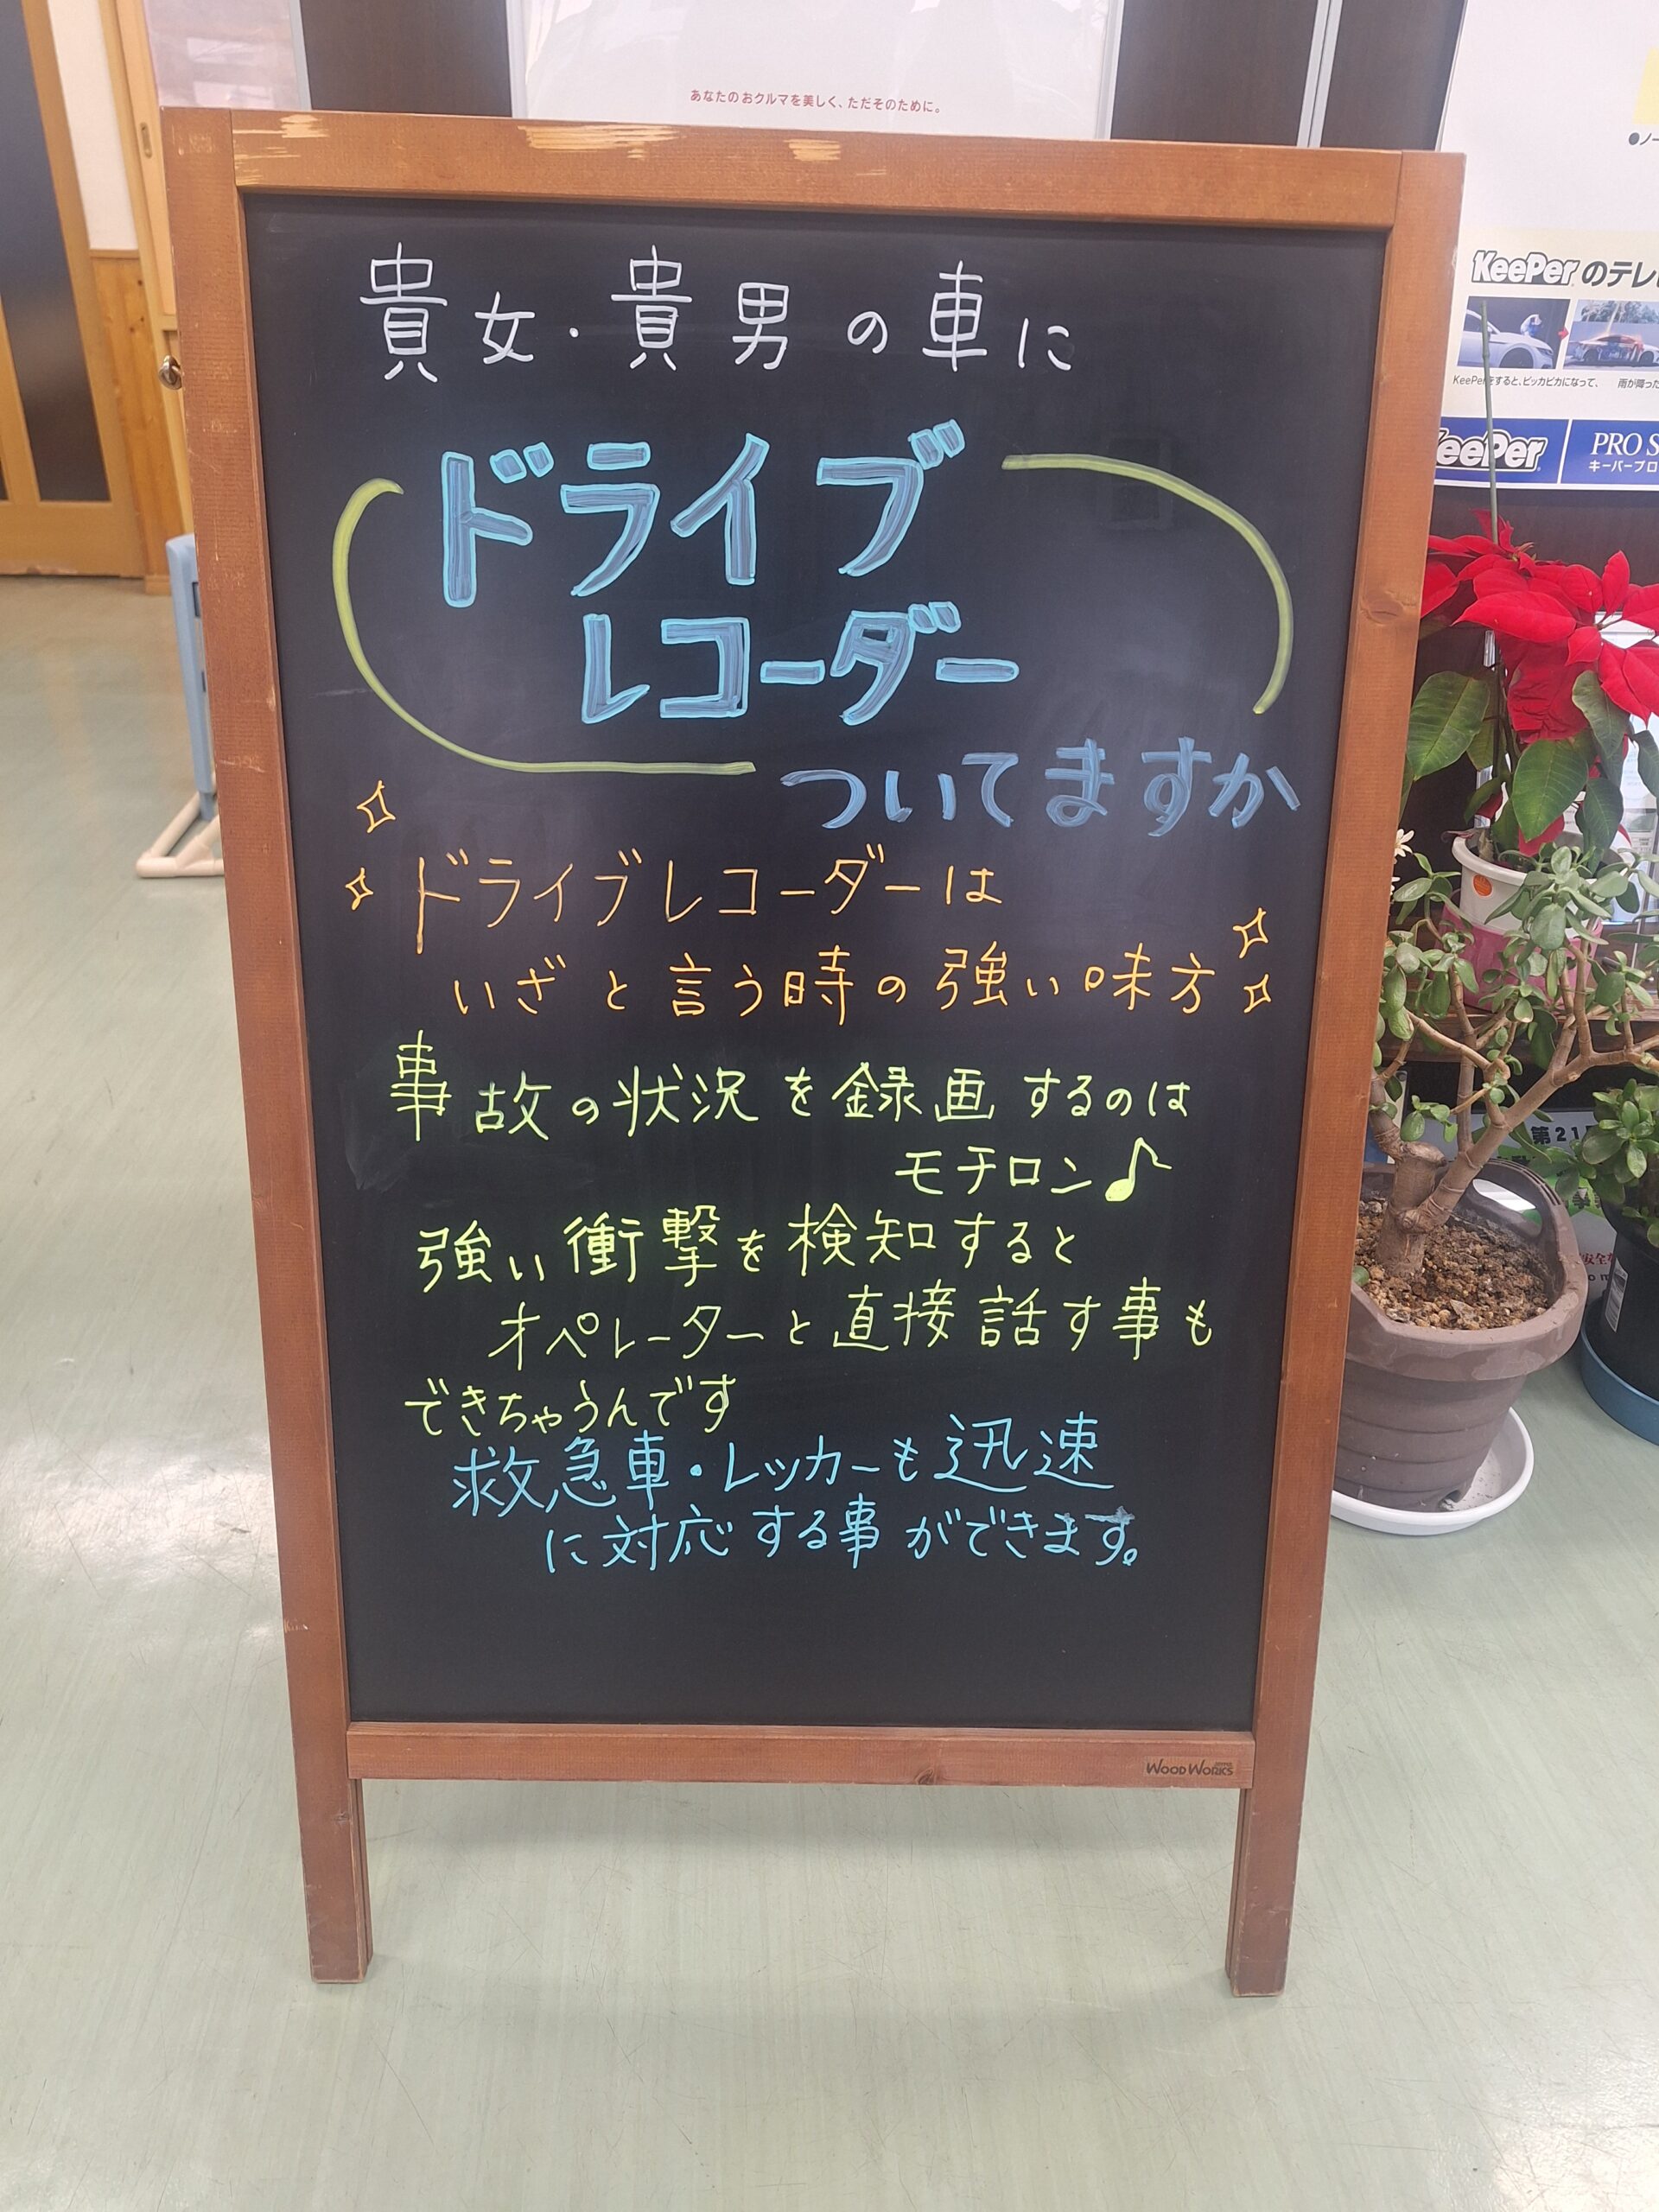 あなたのおクルマを美しく、ただそのために。
貴女・貴男の車に
ドライブ
レコーダー
ついてますか
ドライブレコーダーは
いざと言う時の強い味方
事故の状況を録画するのは
モチロン♪
強い衝撃を検知すると
オペレーターと直接話す事も
できちゃうんです
救急車・レッカーも迅速
に対応する事ができます。
WOODWORKS
●ノー
KeePerのテレ
KeePerをすると、ピッカピカになって、
雨が降った
KeePer
PRO S
キーパープロ
第21
安全